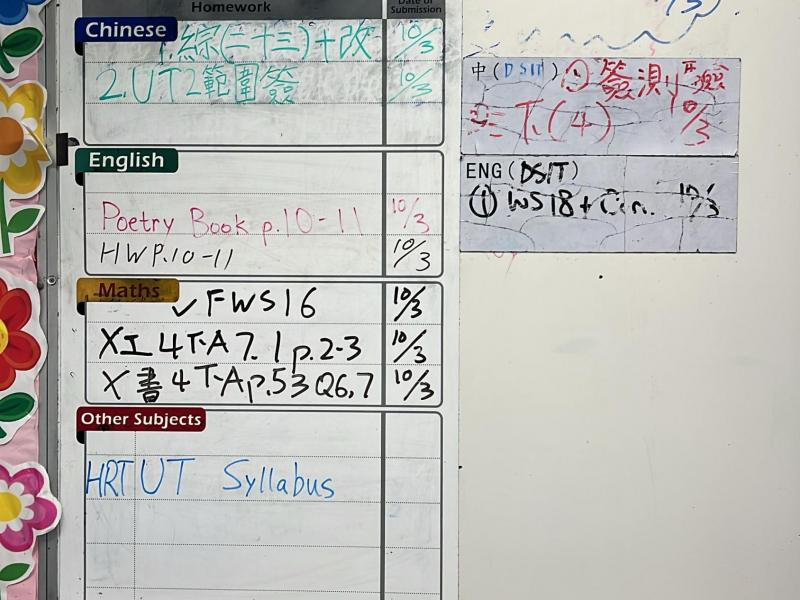 Homework
Date of Submission
Chinese
1.綜(二十三)+改 10/3
2.UT2範圍簽 10/3
English
Poetry Book p.10-11 10/3
HW P.10-11 10/3
Maths
✓FWS16 10/3
X工4下A 7.1 p.2-3 10/3
X書4下A p.53 Q6,7 10/3
Other Subjects
HRT UT Syllabus
中(DSIT) ① 簽測
下(4) 10/3
ENG(DSIT)
① WS18+ Cin. 10/3